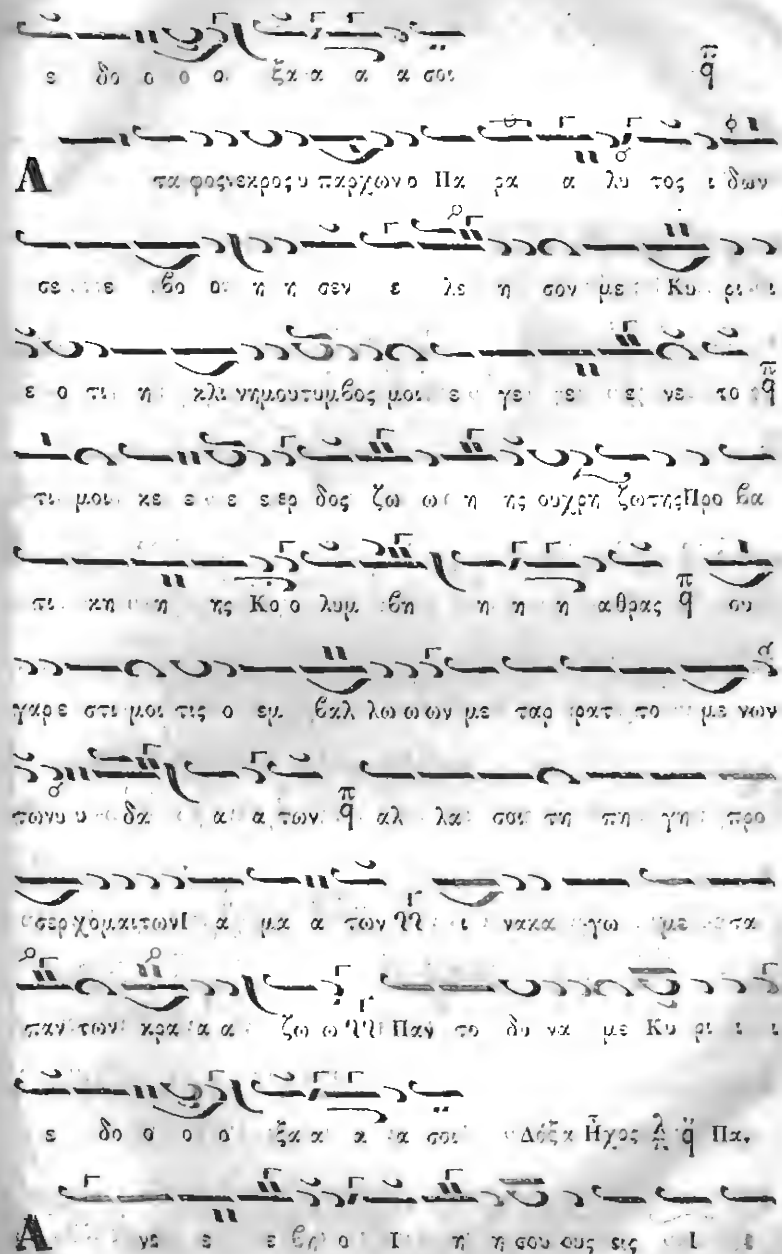 ε δο ο ο ο ξα α α α σοι π q
Α τα φος νεκρος υ παρχων ο Πα ρα α λυ τος ι δων
σε ε βο ο η η σεν ε λε η σον με Κυ ρι ι
ε ο τι η κλι νη μου τυμβος μοι ε γε γε ε νε το π q
τι μοι κε ε ε ε ερ δος ζω ω η ης ου χρη ζω της Προ βα
τι κη η ης Κο ο λυμ βη η η η ηθρας π q ου
γαρ ε στι μοι τις ο εμ βαλ λω ω ων με ταρ ρατ το με νων
των υ υ δα α α των π q αλ λα σοι τη πη γη προ
σερχομαι των Ι α μα α των ι νακα γω με τα
παν των κρα α α ζω ω Παν το δυ να με Κυ ρι ι ι
ε δο ο ο ο ξα α α α σοι Δόξα Ἦχος λ π q Πα.
Α νε ε ε βη ο Ι η η σου ους εις Ι ε